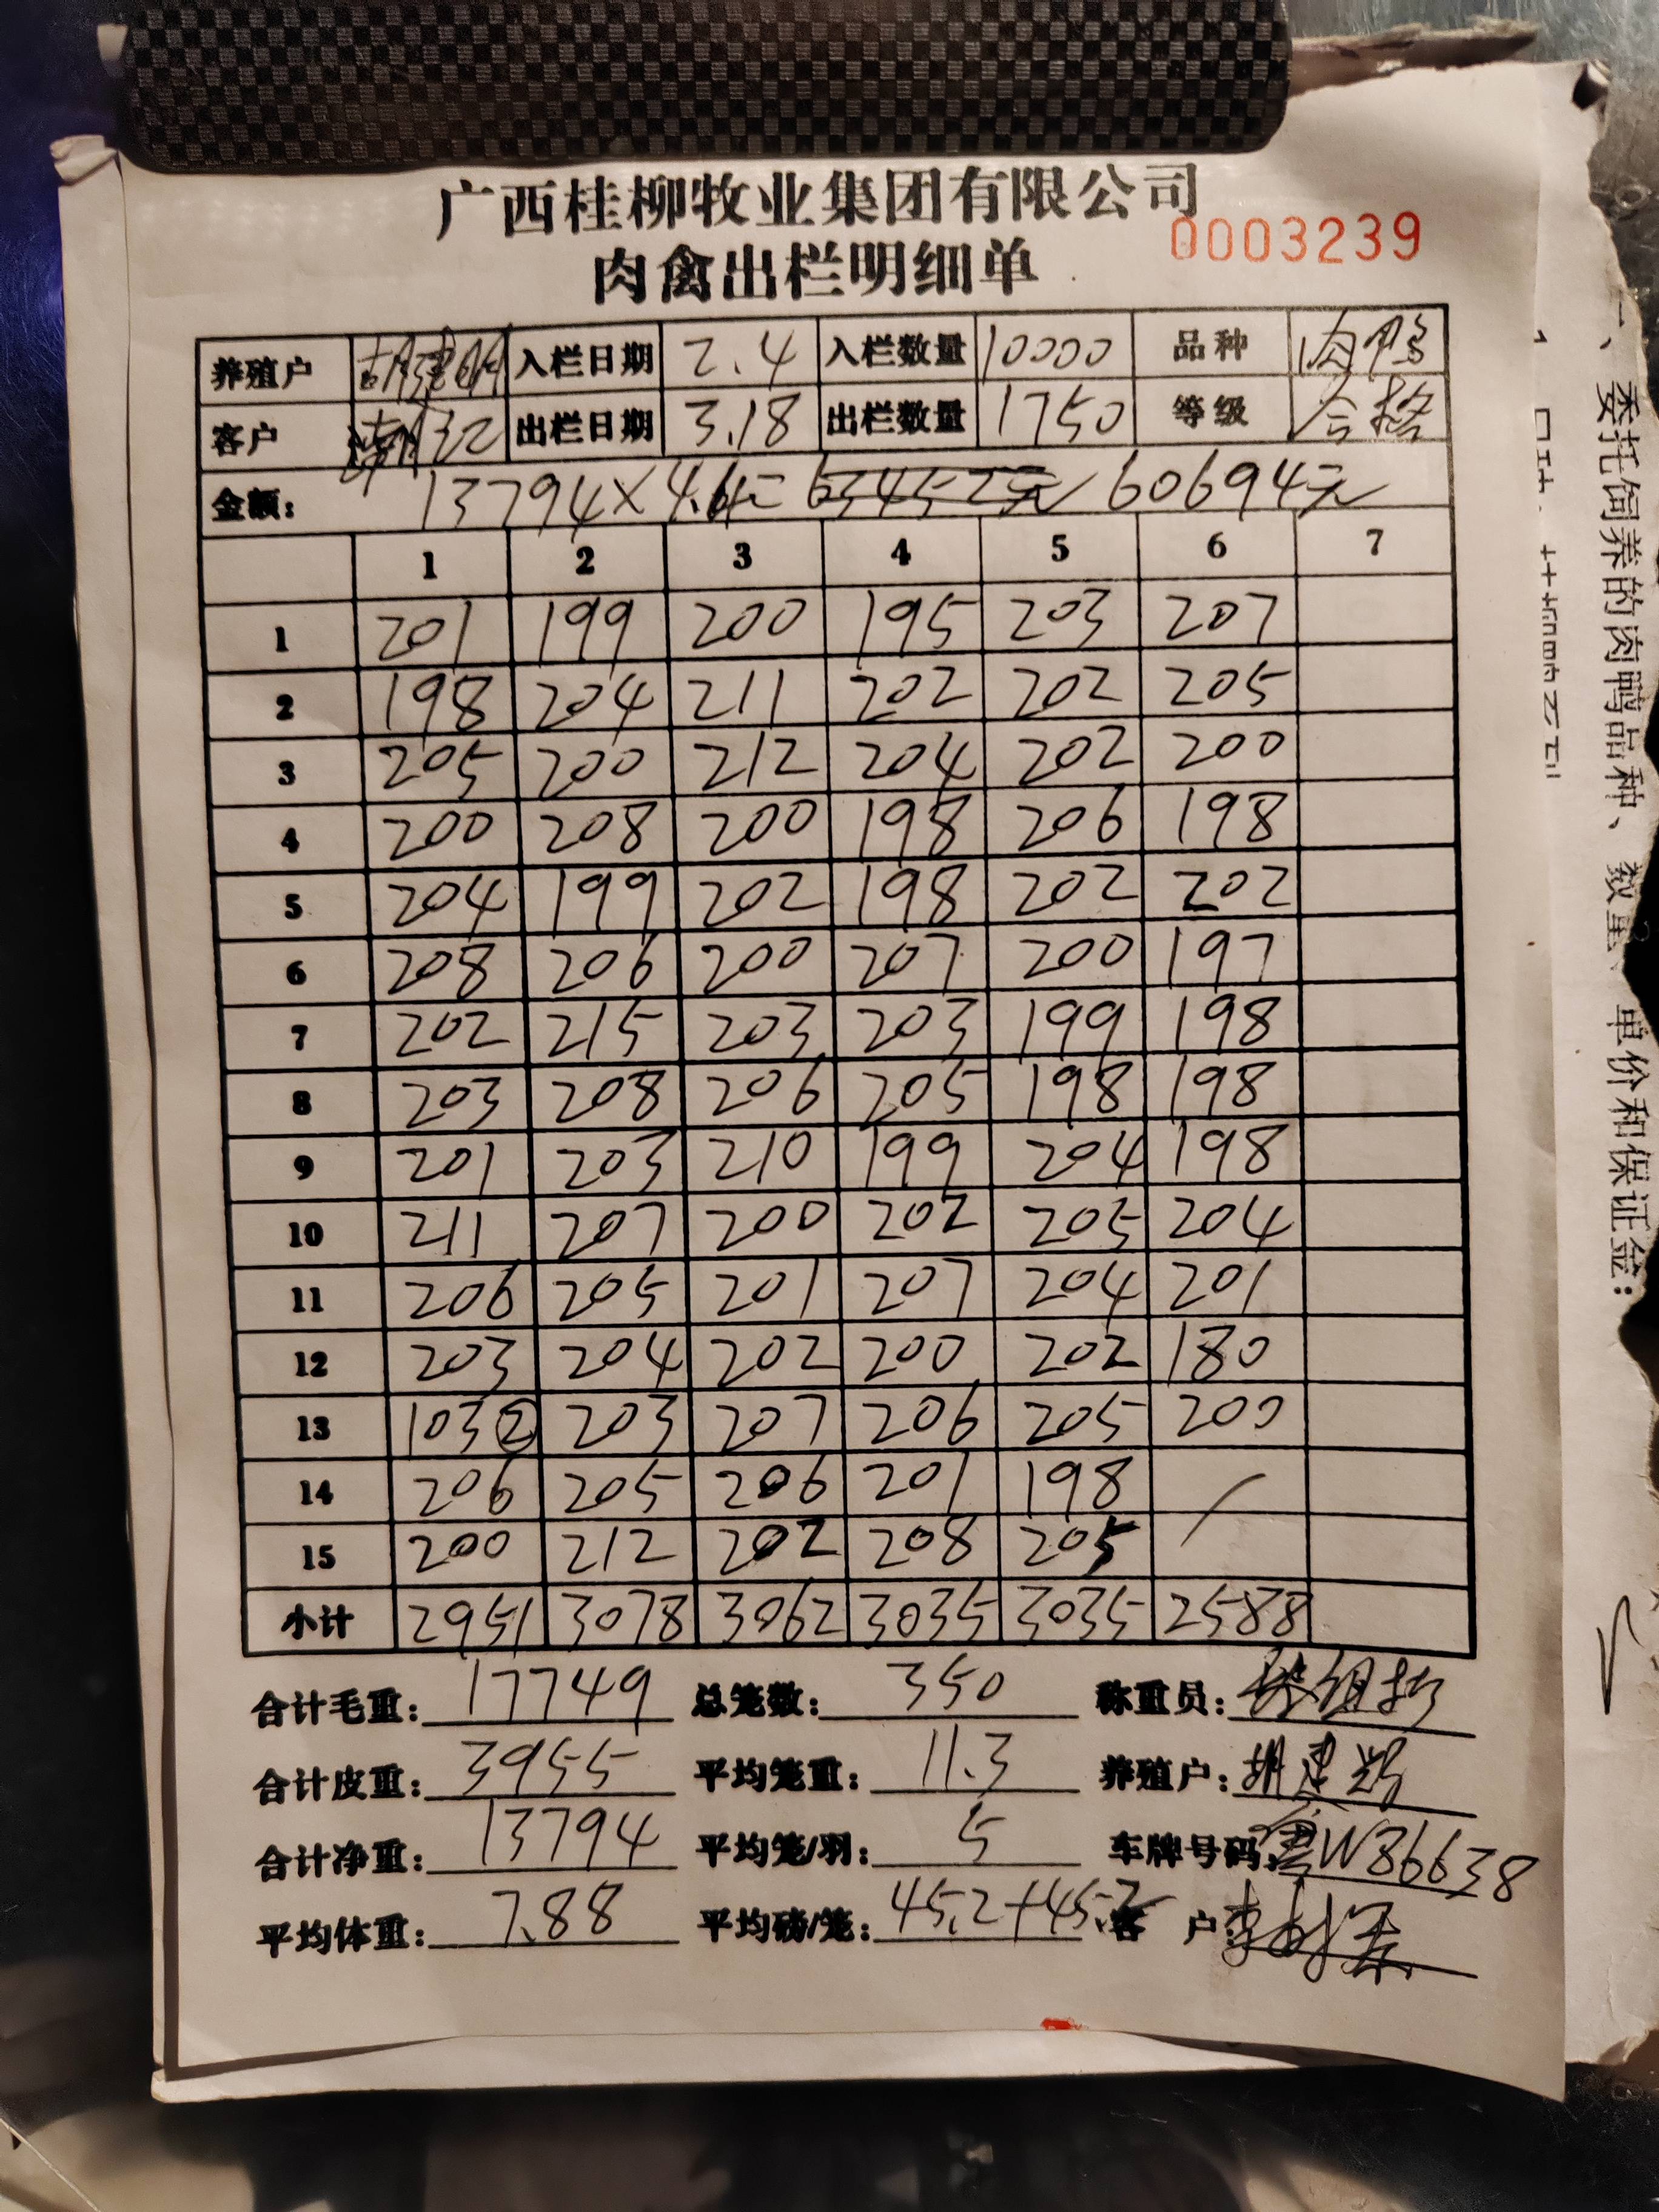 广西桂柳牧业集团有限公司
0003239
肉禽出栏明细单
养殖户 入栏日期 2.4 入栏数量 10000 品种 肉鸭
客户 出栏日期 3.18 出栏数量 1750 等级 合格
金额: 13794× 63452元 60694元
1 2 3 4 5 6 7
1 201 199 200 195 203 207
2 198 204 211 202 202 205
3 205 200 212 204 202 200
4 200 208 200 198 206 198
5 204 199 202 198 202 202
6 208 206 200 207 200 197
7 202 215 203 203 199 198
8 203 208 206 205 198 198
9 201 203 210 199 204 198
10 211 207 200 202 205 204
11 206 205 201 207 204 201
12 203 204 202 200 202 180
13 103② 203 207 206 205 200
14 206 205 206 201 198 /
15 200 212 202 208 205
小计 2951 3078 3062 3035 3035 2588
合计毛重: 17749 总笼数: 350 称重员:
合计皮重: 3955 平均笼重: 11.3 养殖户:
合计净重: 13794 平均笼/羽: 5 车牌号码: 粤W86638
平均体重: 7.88 平均磅/笼: 45.2+45.2 客 户:
委托饲养的肉鸭品种、数量、单价和保证金: